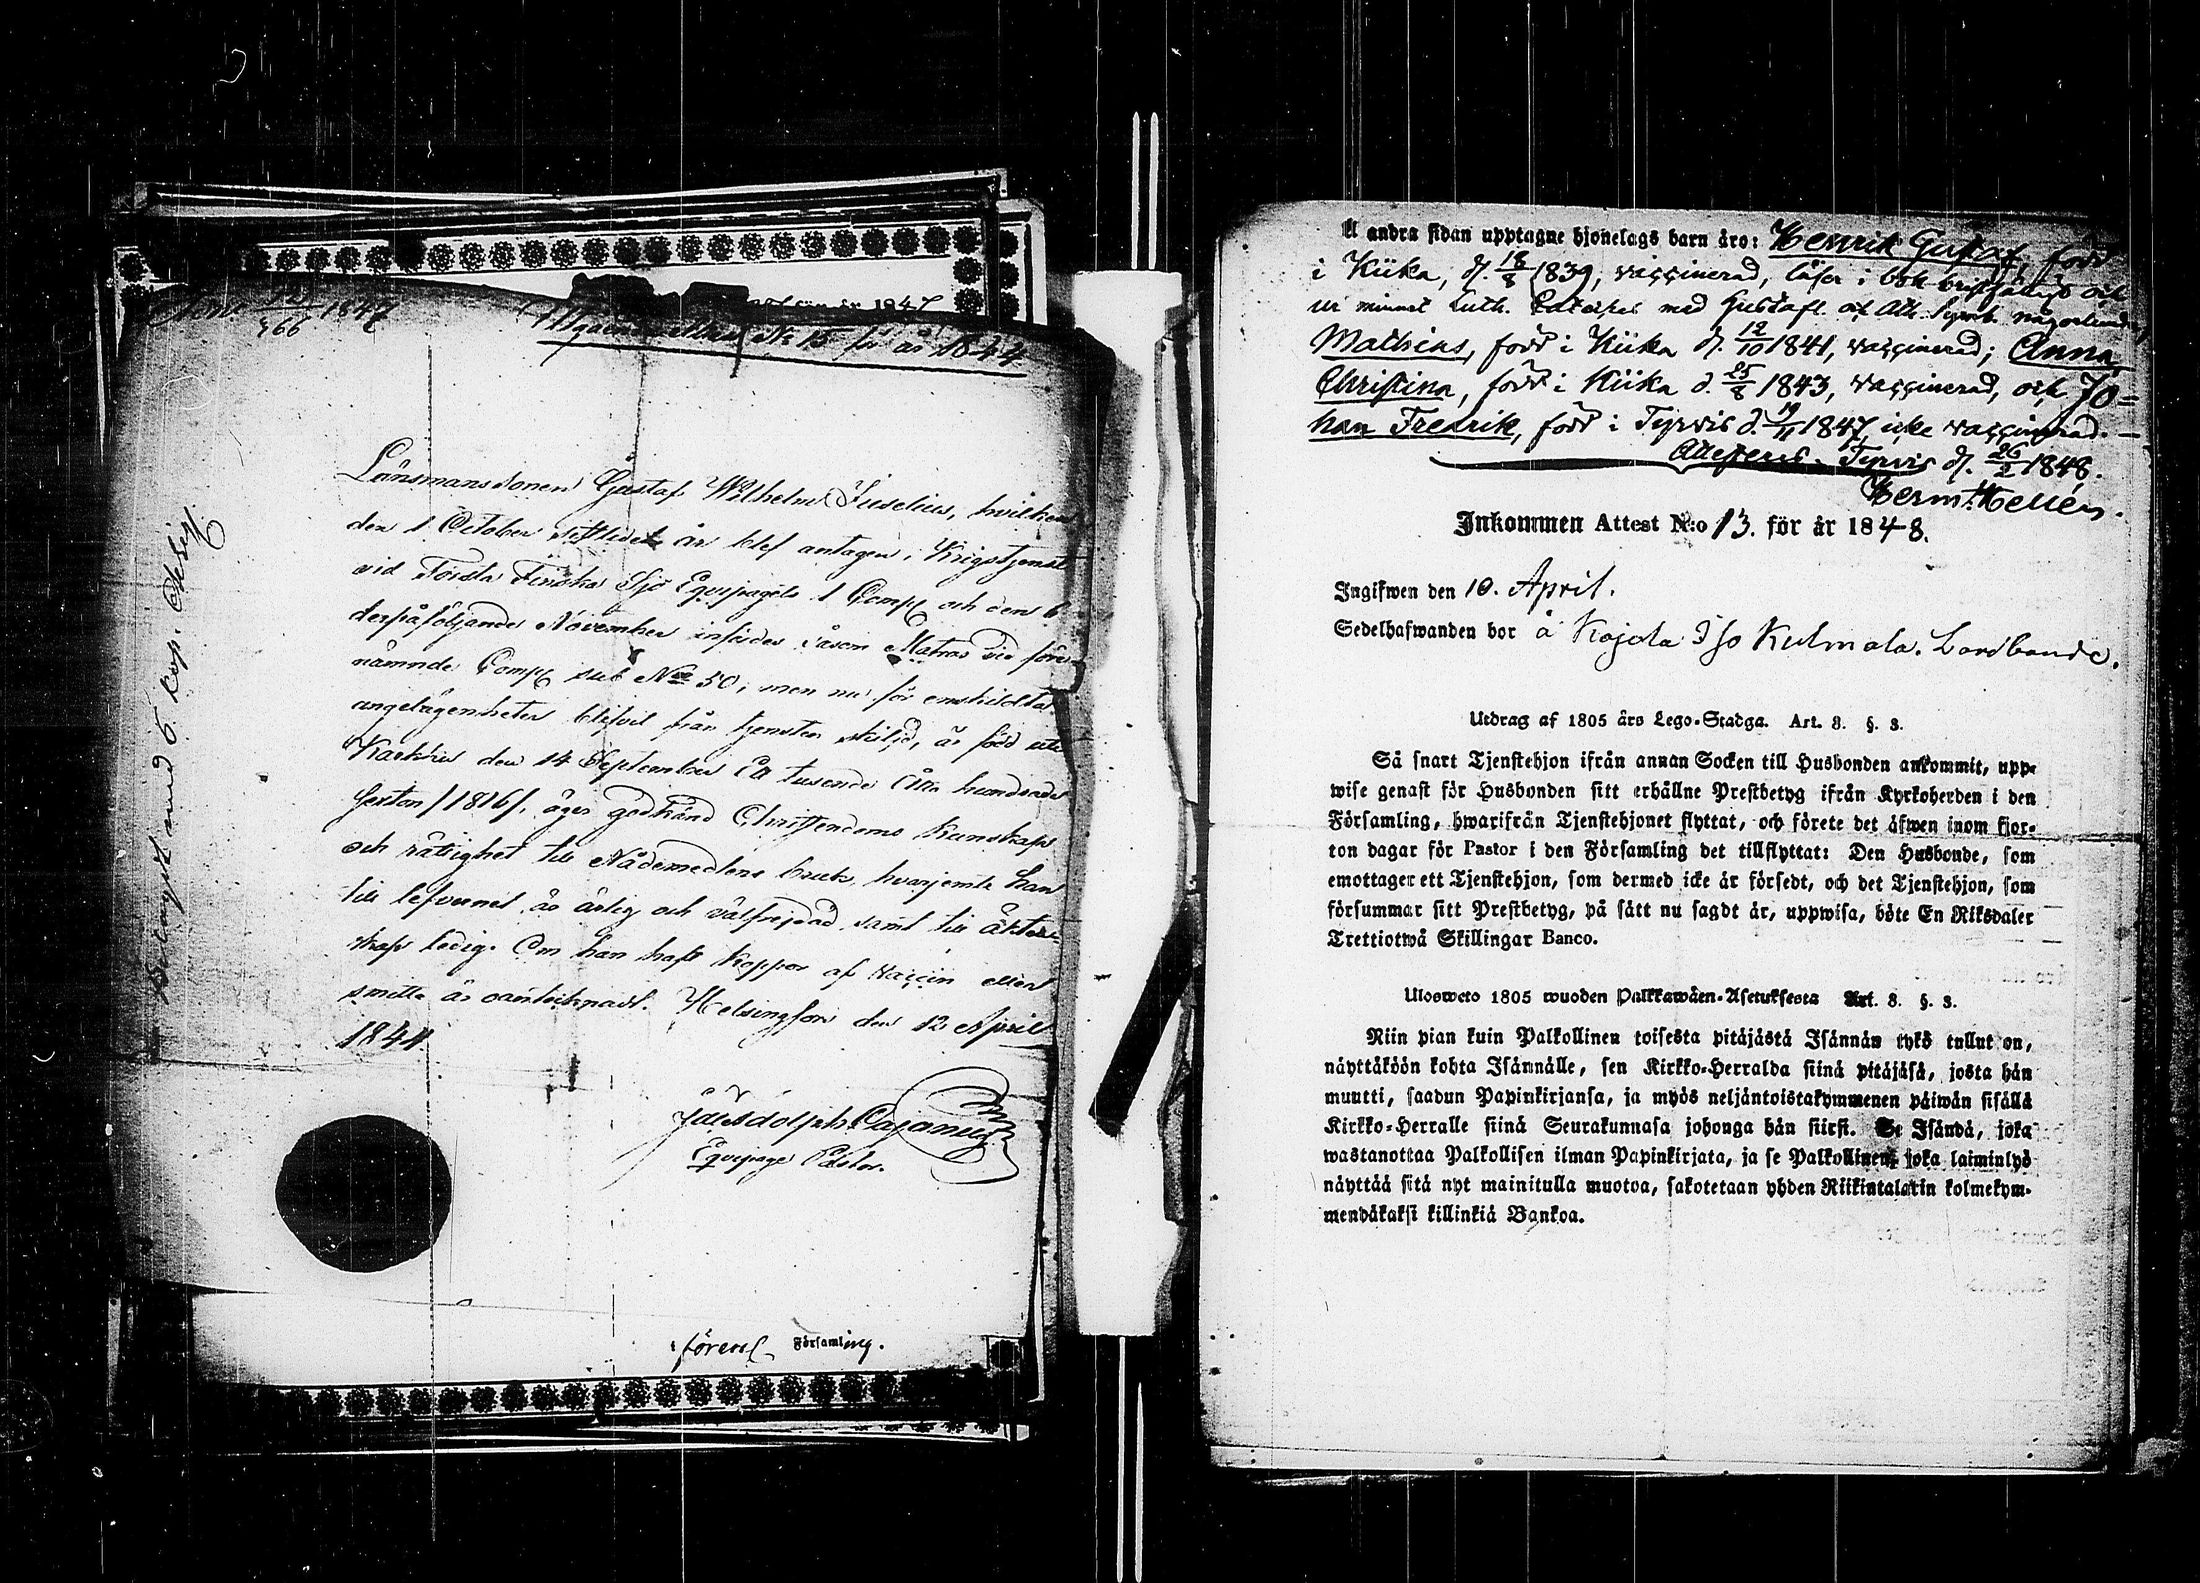 1847
466
1847
Utgående Attest No 15 för år 1844
Länsmanssonen Gustaf Wilhelm Juselius, hvilken
den 1 October sistlidet år blef antagen i Krigstjenst
vid Första Finska Sjö Equipagets 1 Comp och den 6
derpåföljande November införder såsom Matros vid före-
nämnde Comp sub No 50, men nu för enskildta
angelägenheter blifvit från tjensten skiljd, är född uti
Karkku den 14 September Ett tusende Åtta hundrade
Sexton /1816/, äger godkänd Christendoms kunskap
och rättighet till Nådemedlens bruk, hvarjemte han
till lefvernet är ärlig och välfrejdad samt till äkten-
skap ledig. Om han haft koppor af Vaccin eller
smitta är oantecknadt. Helsingfors den 12 April
1844.
Cajanus
Equipage Pastor.
Belagdt med 5 kop.
förens Församling.
Å andra sidan upptagne hjonelags barn äro: Henrik Gustaf, född
i Kiika, d. 18/8 1839, vaccinerad, läser i bok och
ur minnet Luth. Cateches med
Mathias, född i Kiika d. 12/10 1841, vaccinerad; Anna
Christina, född i Kiika d. 25/8 1843, vaccinerad, och Jo=
han Fredrik, född i Tyrvis d. 19/11 1847, icke vaccinerad. —
Attesteras. Tyrvis d. 26/2 1848.
Herm. Hellén.
Inkommen Attest N:o 13. för år 1848.
Ingifwen den 10. April.
Sedelhafwanden bor å Kojola Iso Kulmala. Landbonde.
Utdrag af 1805 års Lego-Stadga. Art. 8. §. 3.
Så snart Tjenstehjon ifrån annan Socken till Husbonden ankommit, upp-
wise genast för Husbonden sitt erhållne Prestbetyg ifrån Kyrkoherden i den
Församling, hwarifrån Tjenstehjonet flyttat, och förete det äfwen inom fjor-
ton dagar för Pastor i den Församling det tillflyttat: Den Husbonde, som
emottager ett Tjenstehjon, som dermed icke är försedt, och det Tjenstehjon, som
försummar sitt Prestbetyg, på sätt nu sagdt är, uppwisa, böte En Riksdaler
Trettiotwå Skillingar Banco.
Ulosweto 1805 wuoden Palkkawäen-Asetuksesta Art. 8. §. 3.
Niin pian kuin Palkollinen toisesta pitäjästä Isännän tykö tullut on,
näyttäköön kohta Isännälle, sen Kirkko-Herralda siinä pitäjäsä, josta hän
muutti, saadun Papinkirjansa, ja myös neljäntoistakymmenen päiwän sisällä
Kirkko-Herralle siinä Seurakunnasa johonga hän siirsi. Se Isändä, joka
wastanottaa Palkollisen ilman Papinkirjata, ja se Palkollinen, joka laiminlyö
näyttää sitä nyt mainitulla muotoa, sakotetaan yhden Riikintalarin kolmekym-
mendäkaksi killinkiä Bankoa.